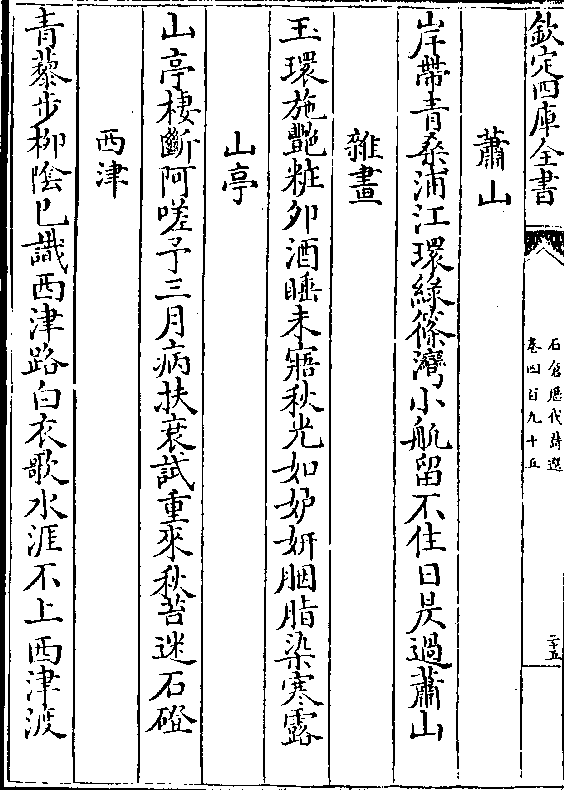 欽定四庫全書
石倉歴代詩選
卷四百九十五
二十五
蕭山
岸帶青桑浦江環緑篠灣小航留不住日昃過蕭山
雜畫
玉環施艷粧夘酒睡未寤秋光如妒妍胭脂染寒露
山亭
山亭棲斷阿嗟予三月病扶衰試重來秋苔迷石磴
西津
青藜步柳隂已識西津路白衣歌水涯不上西津渡